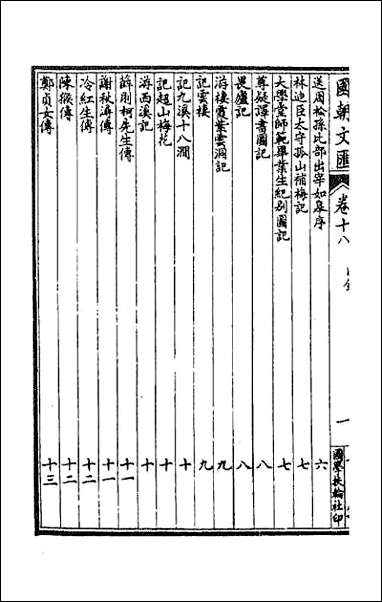 國朝文匯 卷十八 目錄 一 國學扶輪社印
送周松孫比部出宰如皋序 六
林迪臣太守孤山補梅記 七
大學堂師範畢業生紀別圖記 七
尊疑譯書圖記 八
畏廬記 八
游棲霞紫雲洞記 九
記雲棲 九
記九溪十八澗 十
記超山梅花 十
游西溪記 十
薛則柯先生傳 十一
謝秋潯傳 十一
冷紅生傳 十二
陳猴傳 十二
鄭貞女傳 十三